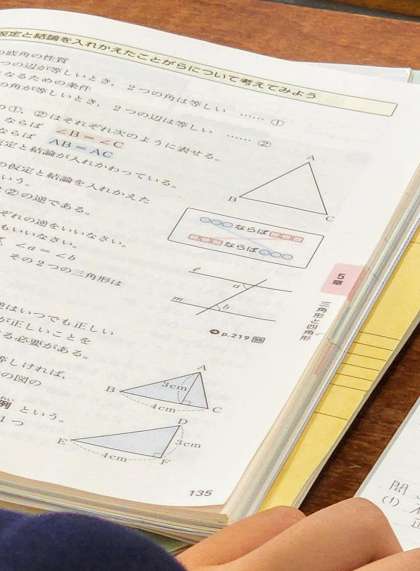 仮定と結論を入れかえたことがらについて考えてみよう
の底角の性質
つの辺が等しいとき，2つの角は等しい …… ①
となるための条件
の角が等しいとき，2つの辺は等しい …… ②
の①，②はそれぞれ次のように表せる。
ならば ∠B＝∠C
ならば AB＝AC
定と結論が入れかわっている。
の仮定と結論を入れかえた
いう。
と②の逆である。
ぞれの逆をいいなさい。
もいいなさい。
∠a＝∠b
その2つの三角形は
はいつでも正しい
が正しいことを
る必要がある。
等しければ，
の図の
例 という。
1つ
A
B
C
○○○ならば□□□
□□□ならば○○○
ℓ
a
m
b
p.219
5章
三角形と四角形
A
B
3cm
4cm
C
D
E
3cm
4cm
F
135
問
(1)